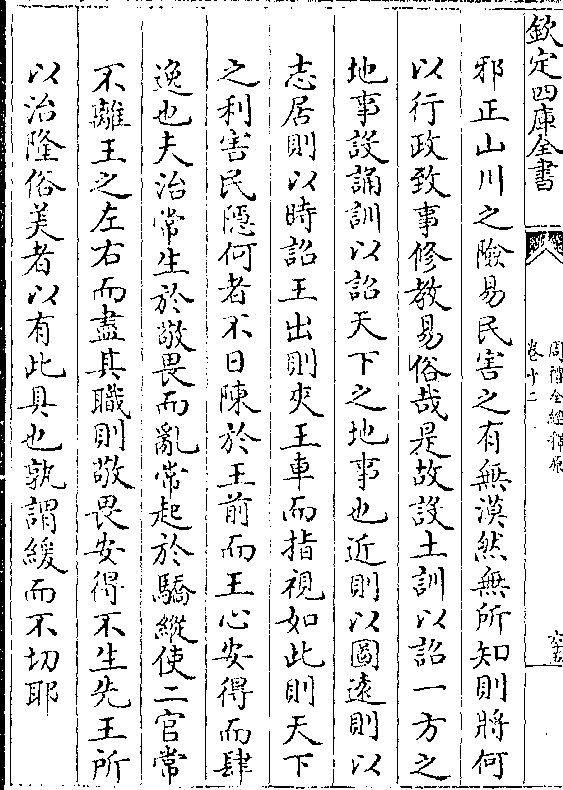 欽定四庫全書
周禮全經釋原
卷十二
六五
邪正山川之險易民害之有無漠然無所知則將何
以行政致事修教易俗哉是故設土訓以詔一方之
地事設誦訓以詔天下之地事也近則以圖遠則以
志居則以時詔王出則夾王車而指視如此則天下
之利害民隱何者不日陳於王前而王心安得而肆
逸也夫治常生於敬畏而亂常起於驕縱使二官常
不離王之左右而盡其職則敬畏安得不生先王所
以治隆俗美者以有此具也孰謂緩而不切耶